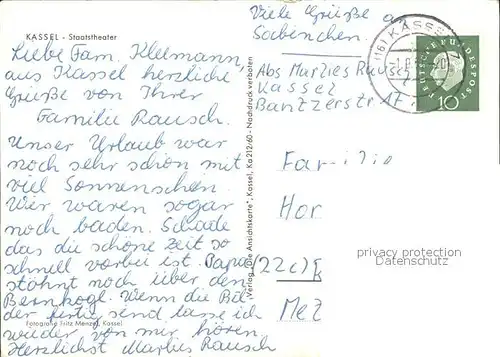 KASSEL - Staatstheater
Liebe Fam. Kleemann,
aus Kassel herzliche
Grüße von Ihrer
Familie Rausch.
Unser Urlaub war
noch sehr schön mit
viel Sonnenschein.
Wir waren sogar
noch baden. Schade
das die schöne Zeit so
schnell vorbei ist. Papa
stöhnt noch über den
Bernkogl. Wenn die Bil
der fertig send lasse ich
wieder von mir hören.
Herzlichst Marlies Rausch
Fotografie Fritz Menzel, Kassel
Verlag "Die Ansichtskarte", Kassel, Ka 212/60 - Nachdruck verboten
Viele Grüße a
Sabinchen.
Abs Marlies Rausch
Kassel
Bantzerstr 17
(16) KASSEL
DEUTSCHE BUNDESPOST
10
Familie
Hor
(22c)
Mez
privacy protection
Datenschutz